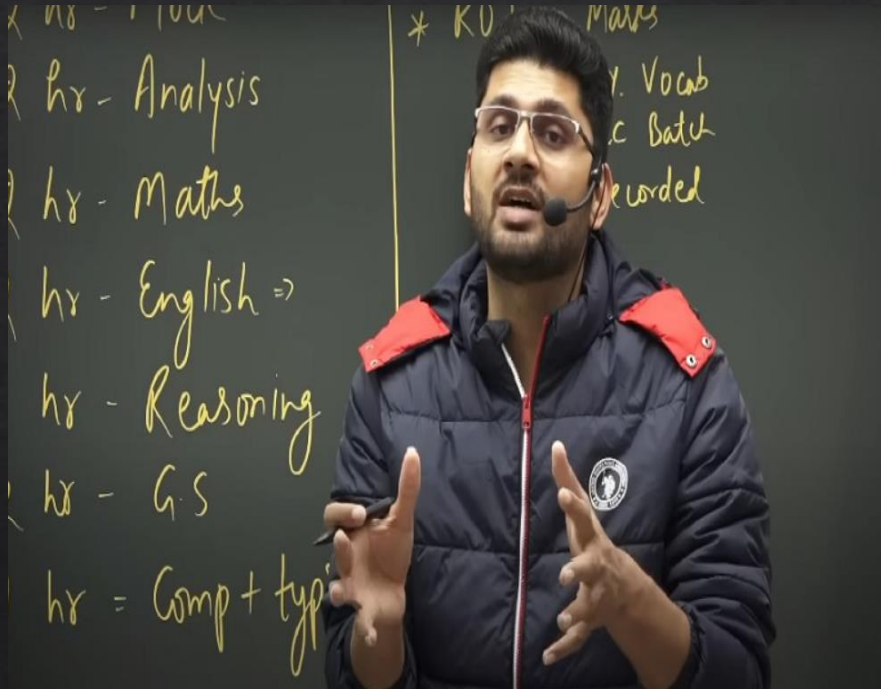 hr - Mock
hr - Analysis
hr - Maths
hr - English =>
hr - Reasoning
hr - G.S
hr = Comp + typ
* Maths
Vocab
Batch
ecorded